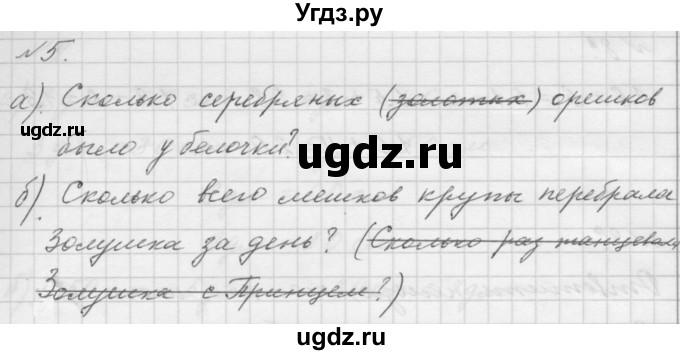 Угdz.ру
№5.
а). Сколько серебряных (золотых) орешков
ugdz.ru
было у белочки?
ugdz.ru
б). Сколько всего мешков крупы перебрала
Золушка за день? (Сколько раз танцевала
Золушка с Принцем?)
ugdz.ru
ugdz.ru